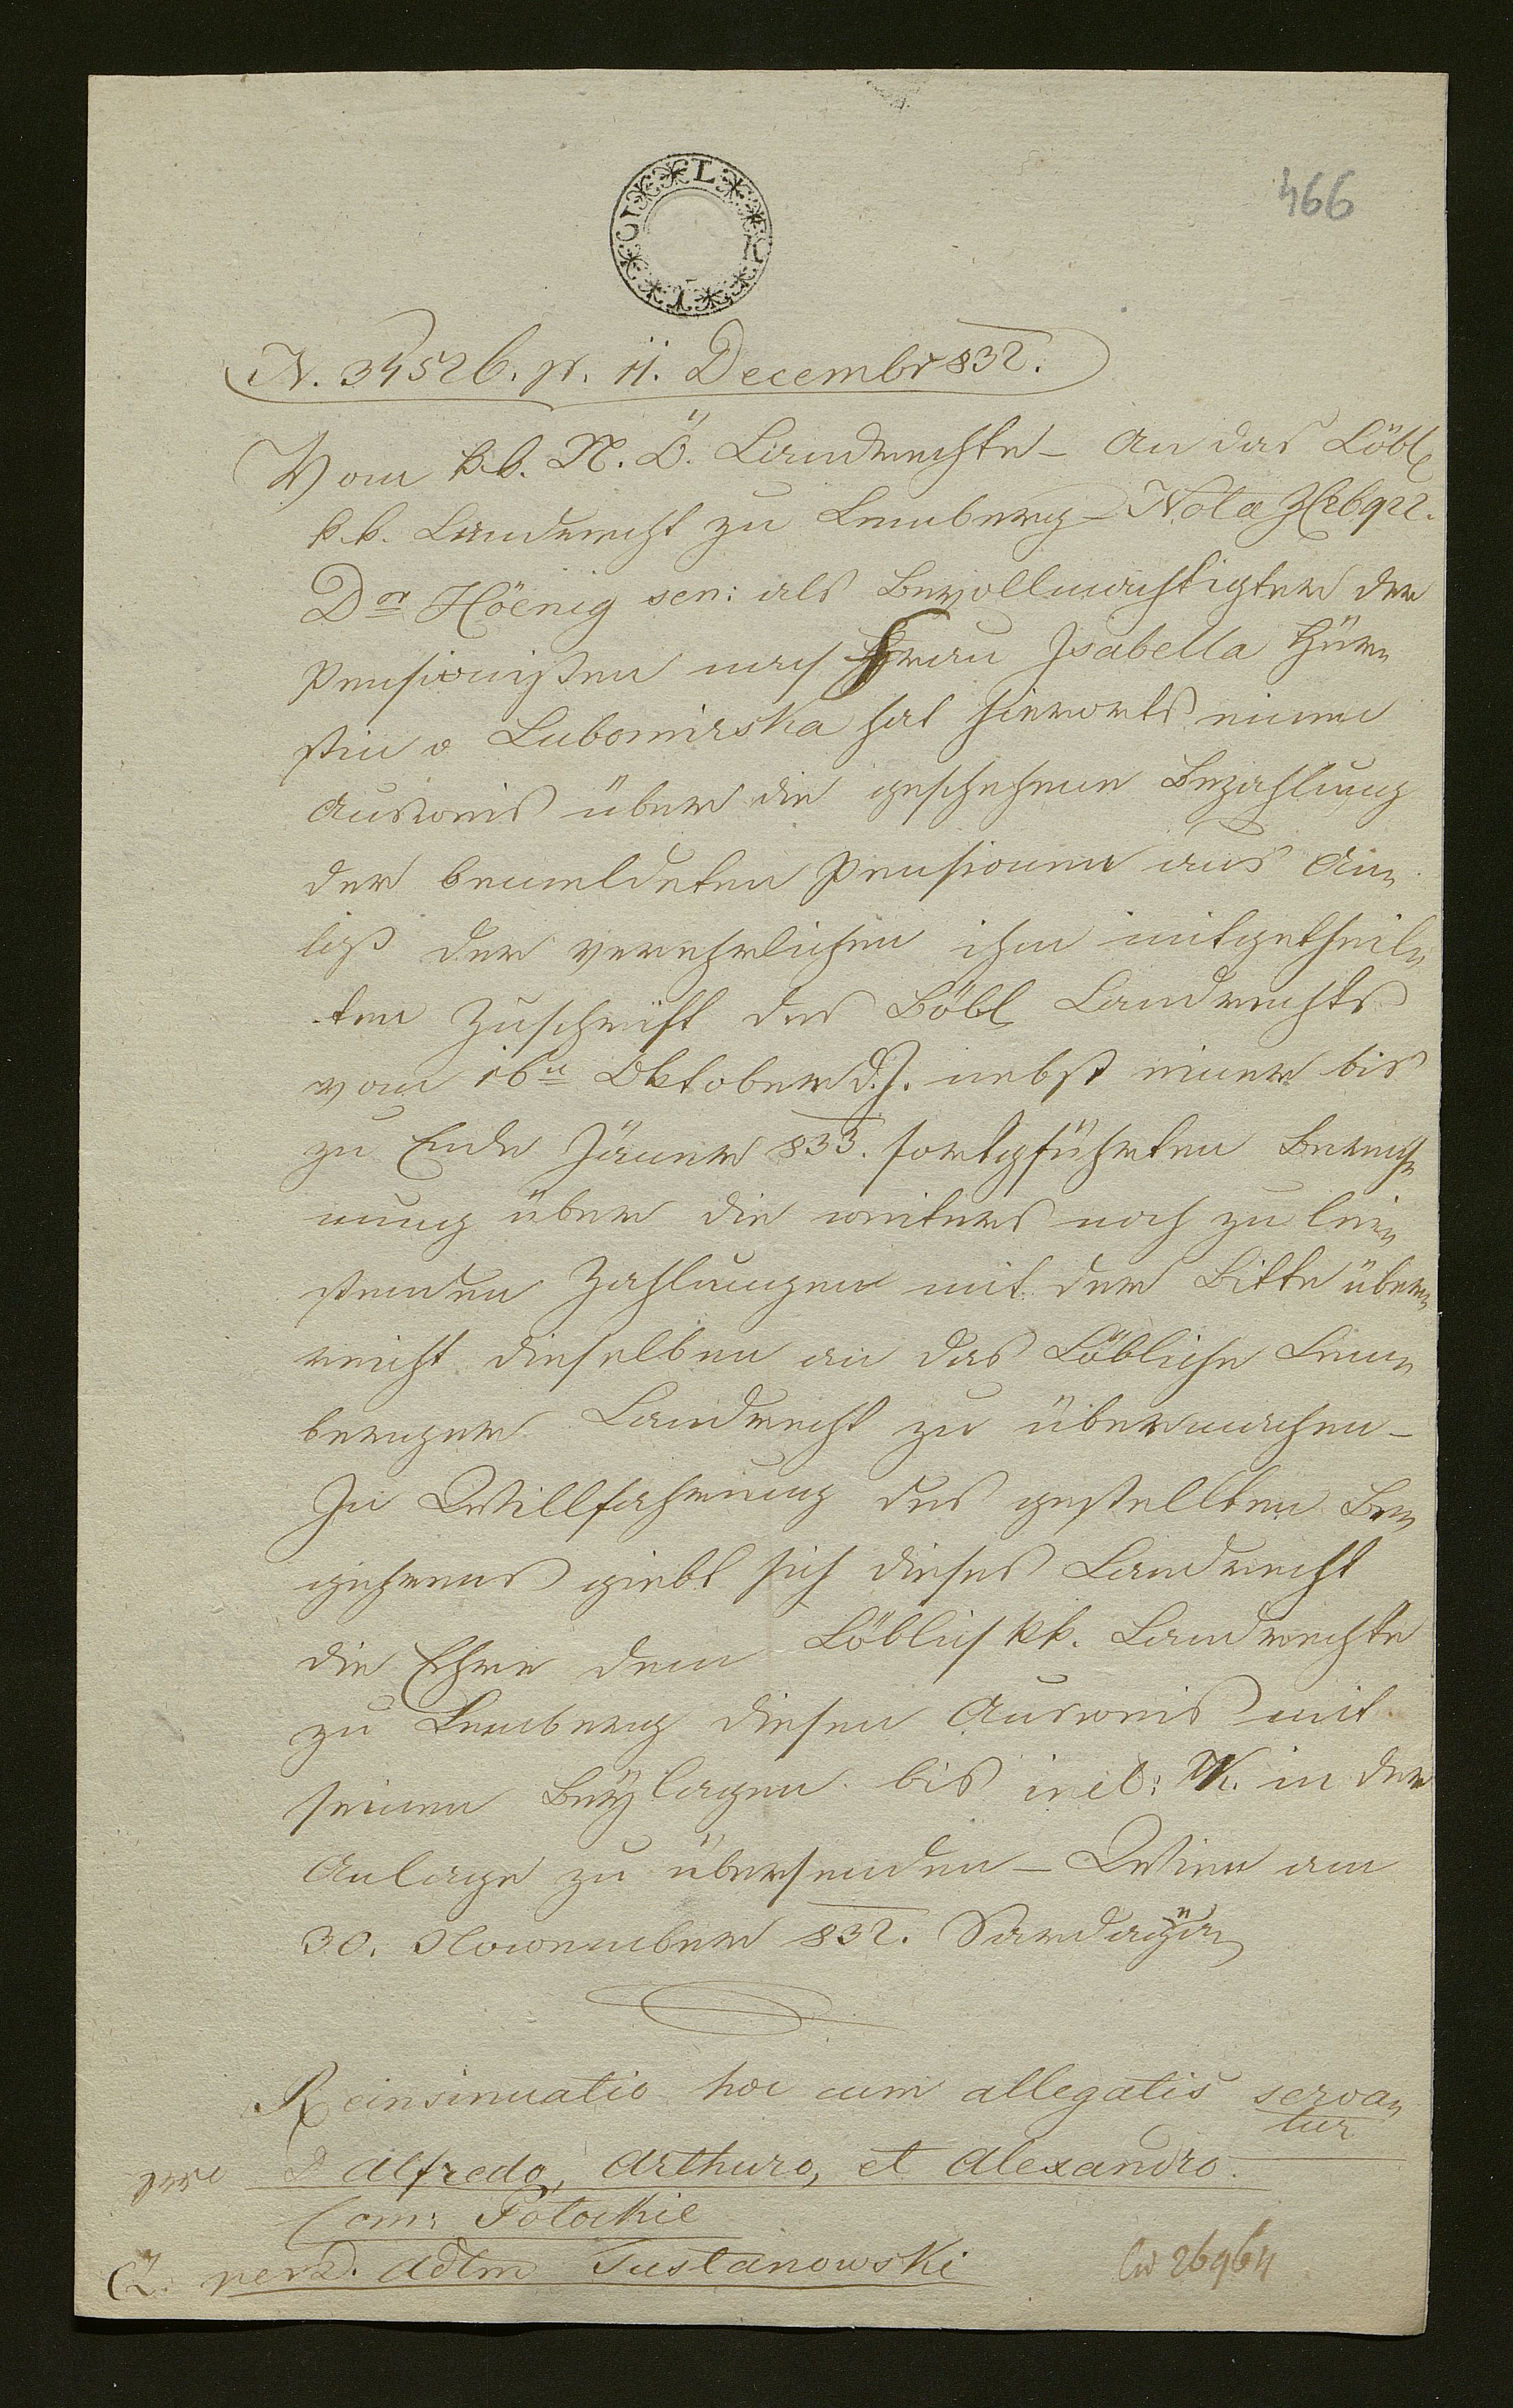 466
N. 34526. pr. 11. Decembr 832.
Vom k.k. N. Ö. Landrechte – An das Löbl
k.k. Landrecht zu Lemberg – Nota
Dor Höenig sen: als Bevollmächtigter der
Pensionisten nach Frau Isabella Für„
stin v Lubomirska hat hierorts einen
Ausweis über die geschehene Bezahlung
der bemeldeten Pensionen aus An„
laß der verehrlichen ihm mitgetheil„
ten Zuschrift des Löbl Landrechts
vom 16n Oktober d. J. nebst einer bis
zu Ende Jäner 833. fortgführten Berech„
nung über die weiters noch zu lei„
stenden Zahlungen mit der Bitte über„
reicht dieselben an das Löbliche Lem„
berger Landrecht zu übermachen –
In Willfahrung des gestellten Be„
gehrens giebt sich dieses Landrecht
die Ehre dem Löblich kk. Landrechte
zu Lemberg diesen Ausweis mit
seinen Beÿlagen bis incl: K. in der
Anlage zu übersenden – Wien am
30. November 832.
Reinsinuatio hoc cum allegatis servan„
tur
pro D Alfredo, Arthuro, et Alexandro
Com: Potockie
per D. Adtm Tustanowski
26964